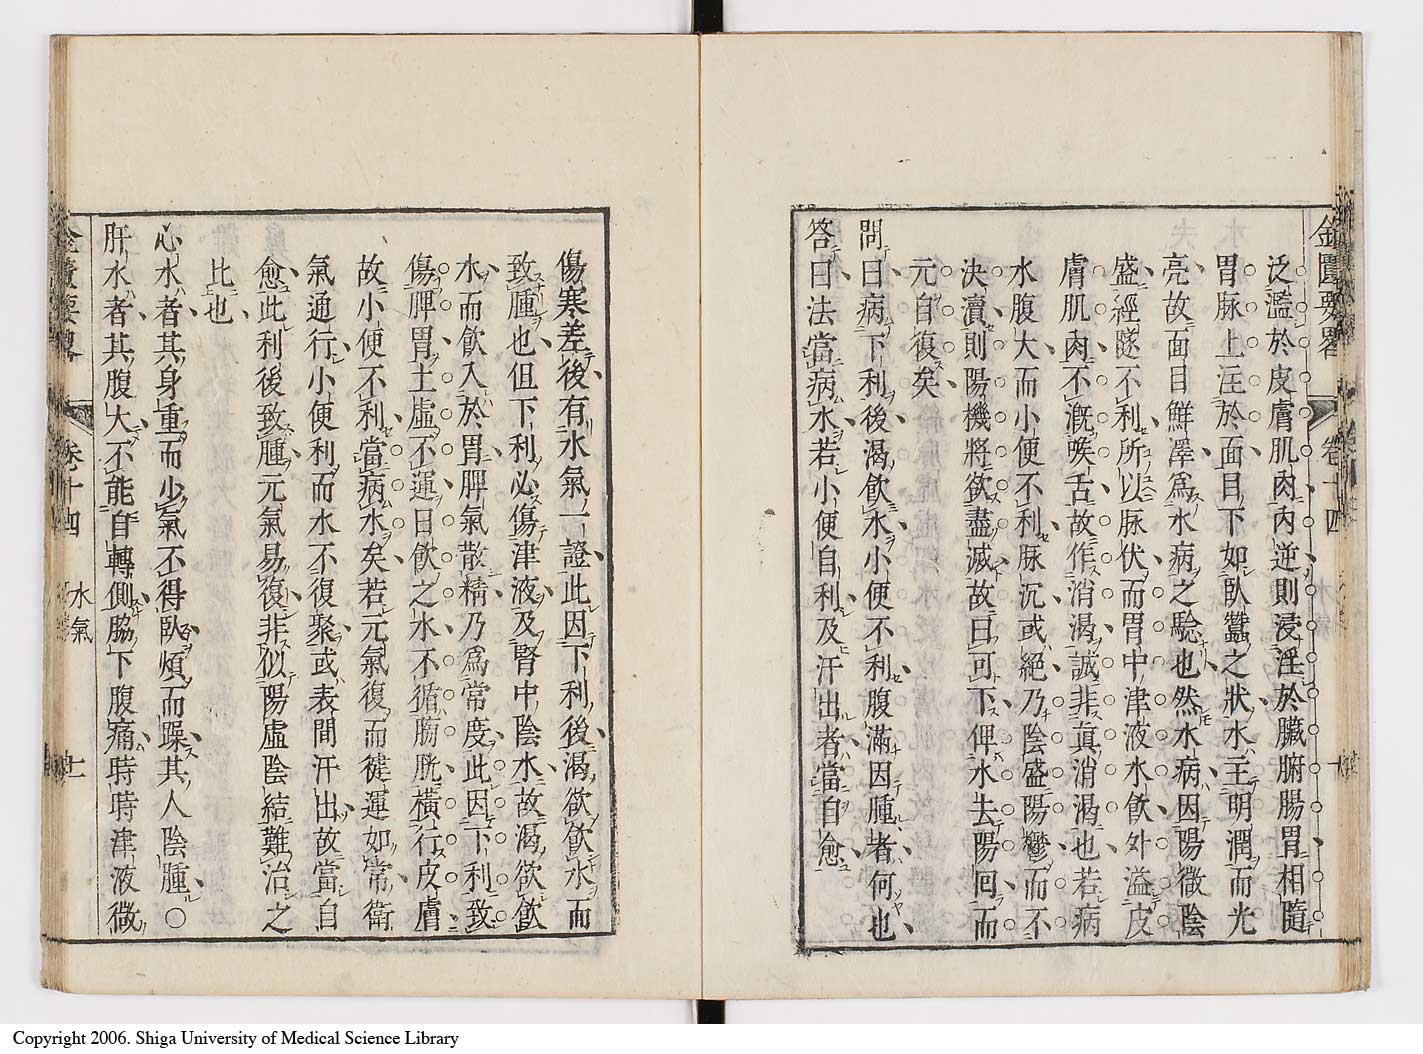 金匱要畧 卷十四 十
泛濫於皮膚肌肉内逆則浸淫於臟腑腸胃相隨
胃脉上注於面目下如臥蠶之狀水主明潤而光
亮故面目鮮澤爲水病之騐也然水病因陽微陰
盛經隧不利所以脉伏而胃中津液水飮外溢皮
膚肌肉不漑喉舌故作消渴誠非眞消渴也若病
水腹大而小便不利脉沉或絕乃陰盛陽鬱而不
決瀆則陽機將欲盡滅故曰可下俾水去陽回而
元自復矣
問曰病下利後渴飮水小便不利腹滿因腫者何也
答曰法當病水若小便自利及汗出者當自愈
傷寒差後有水氣一證此因下利後渴欲飮水而
致腫也但下利必傷津液及腎中陰水故渴欲飮
水而飮入於胃脾氣散精乃爲常度此因下利致
傷脾胃土虛不運日飮之水不循膀胱橫行皮膚
故小便不利當病水矣若元氣復而健運如常衛
氣通行小便利而水不復聚或表間汗出故當自
愈此利後致腫元氣易復非似陽虛陰結難治之
比也
心水者其身重而少氣不得臥煩而躁其人陰腫〇
肝水者其腹大不能自轉側脇下腹痛時時津液微
金匱要畧 卷十四 水氣 十一
Copyright 2006. Shiga University of Medical Science Library